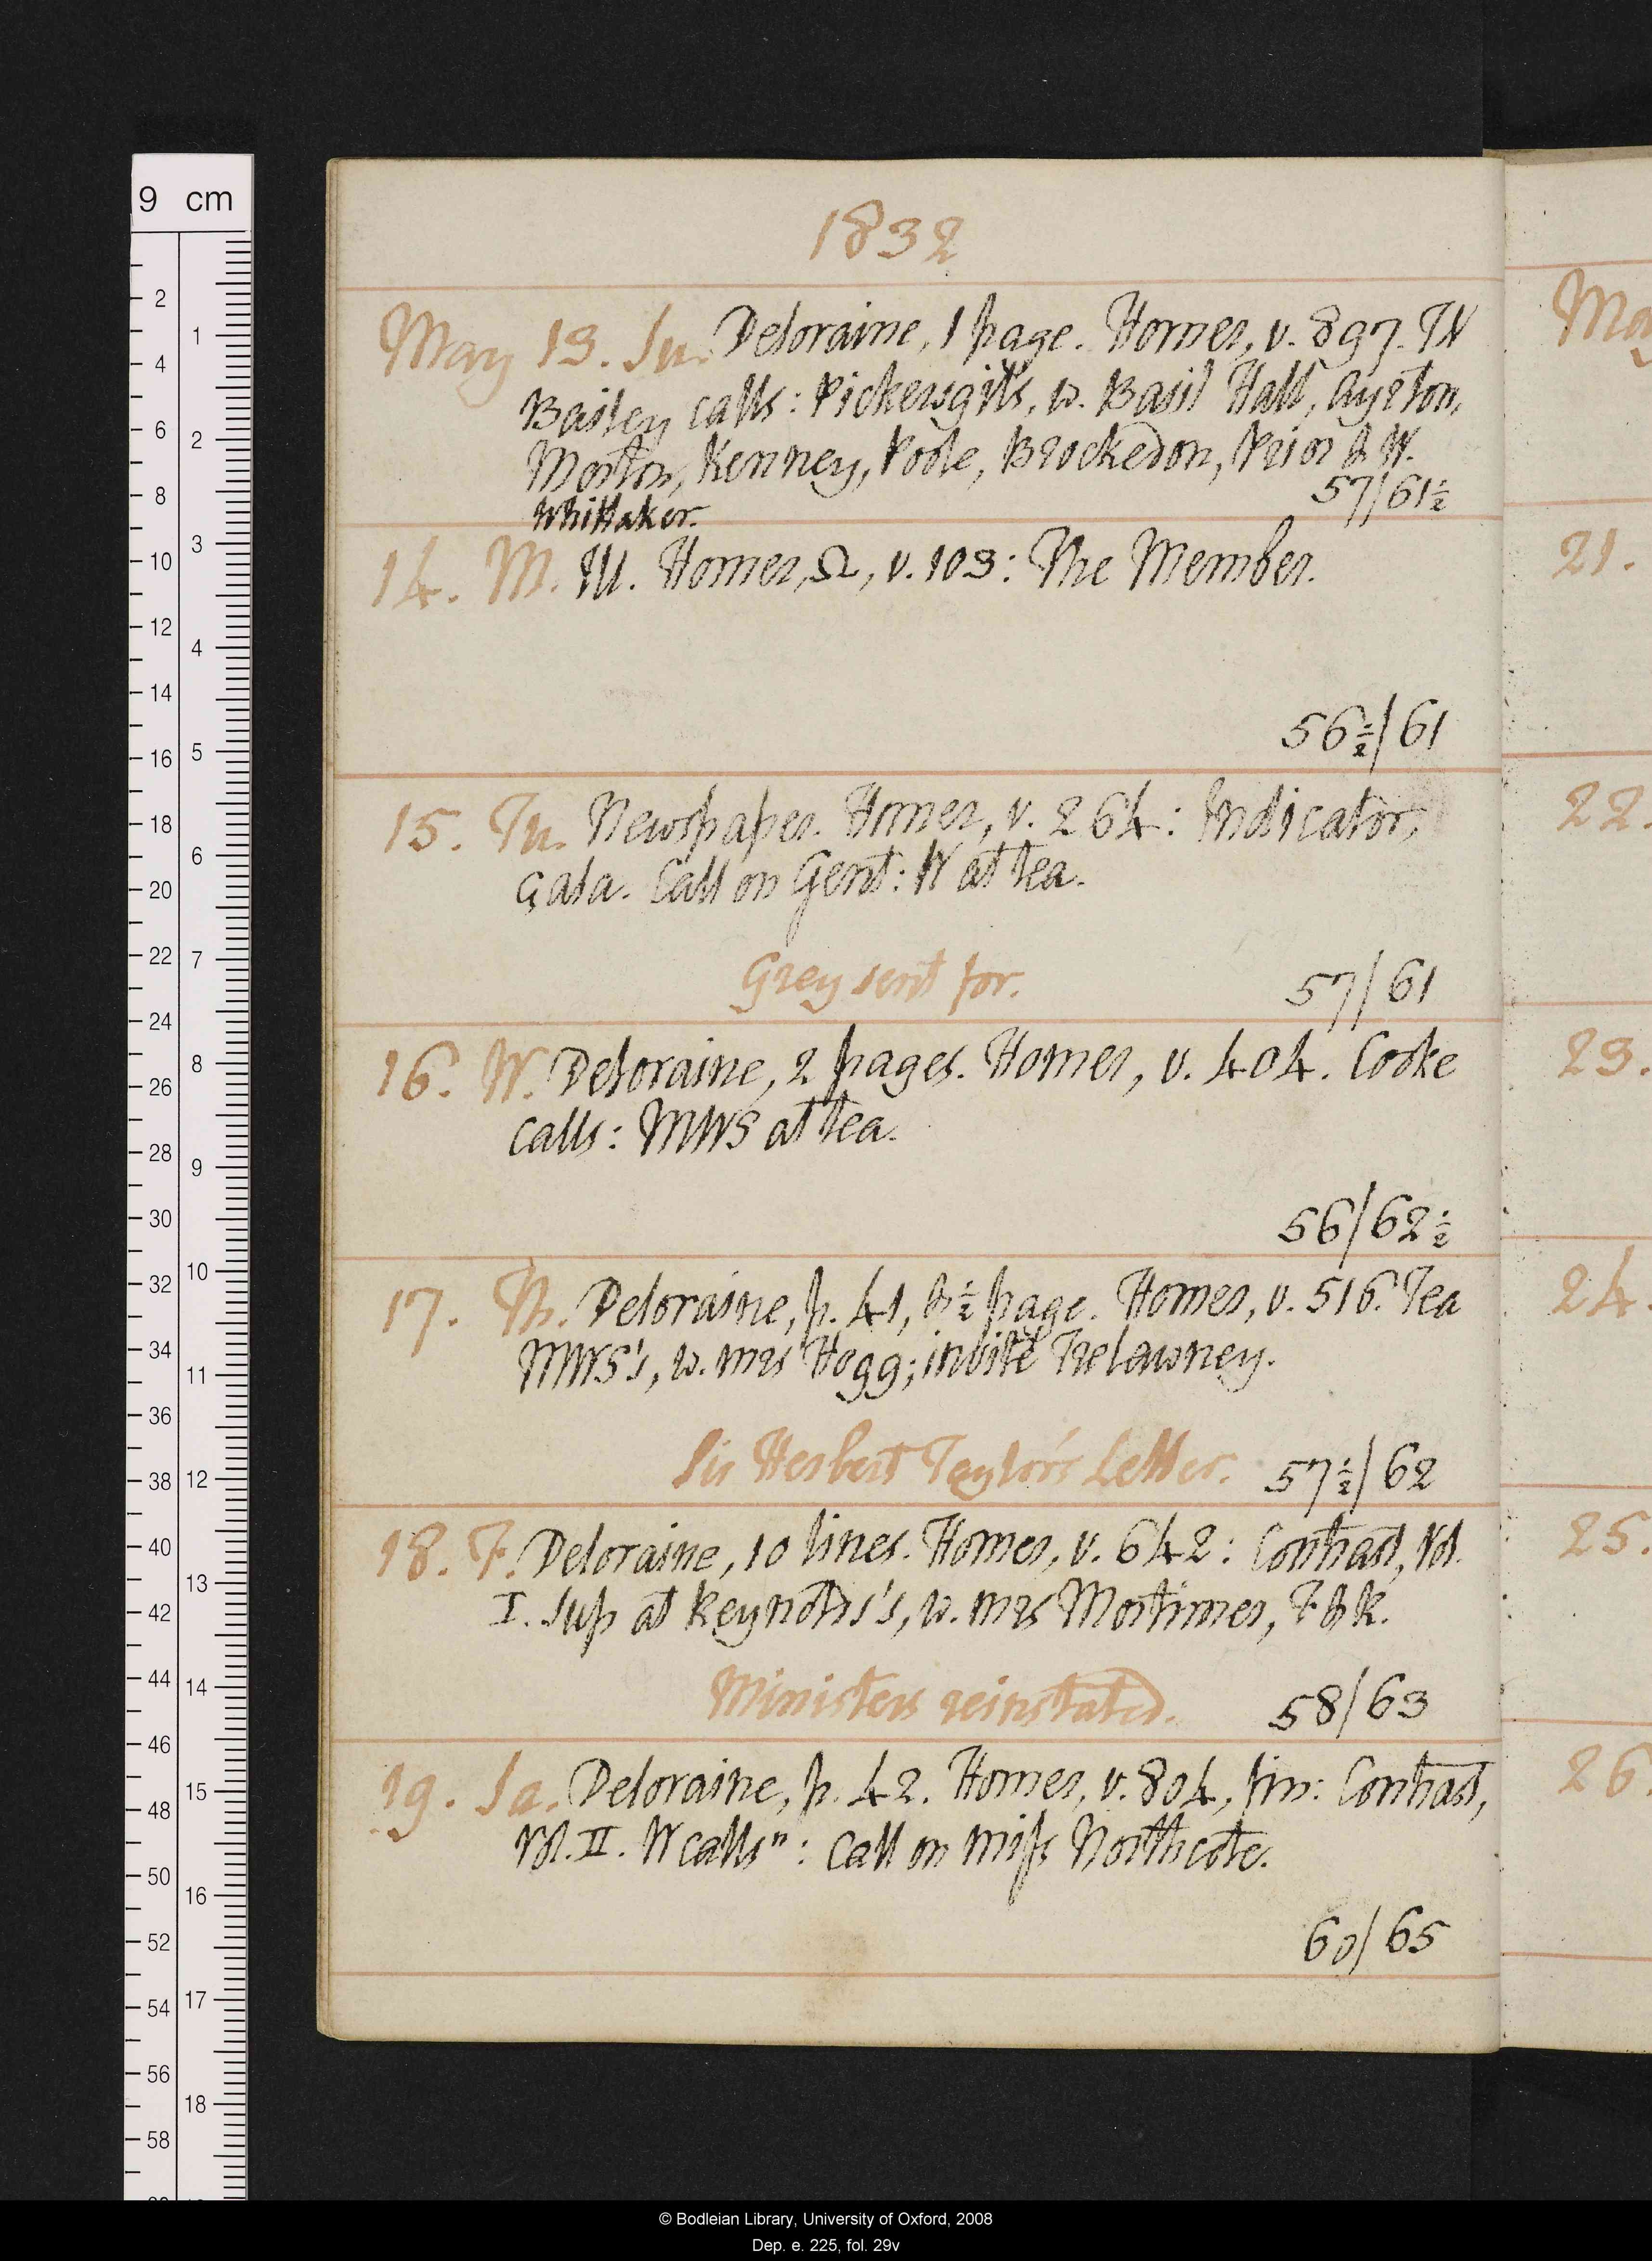 1832
May 13. Su. Deloraine, 1 page. Homer, v. 897. TN
Bailey calls: Pickersgill's, w. Basil Hall, Ayrton,
Morton, Kenney, Poole, Brockedon, Prior & W.
Whittaker. 57/61½
14. M. Ill. Homer, Ω, v. 103: The Member.
56½/61
15. Tu. Newspaper. Homer, v. 264: Indicator,
Çala. Call on Gent: W at tea.
Grey sent for. 57/61
16. W. Deloraine, 2 pages. Homer, v. 404. Cooke
calls: MWS at tea.
56/62½
17. Th. Deloraine, p. 41, & ½ page. Homer, v. 516. Tea
MWS's, w. mrs Hogg; invité Trelawney.
Sir Herbert Taylor's Letter. 57½/62
18. F. Deloraine, 10 lines. Homer, v. 642: Contrast, Vol.
I. Sup at Reynolds's, w. mrs Mortimer, F & K.
Ministers reinstated. 58/63
19. Sa. Deloraine, p. 42. Homer, v. 804, fin: Contrast,
Vol. II. W calls n: call on miss Northcote.
60/65
21.
22.
23.
24
25.
26.
9 cm
© Bodleian Library, University of Oxford, 2008
Dep. e. 225, fol. 29v